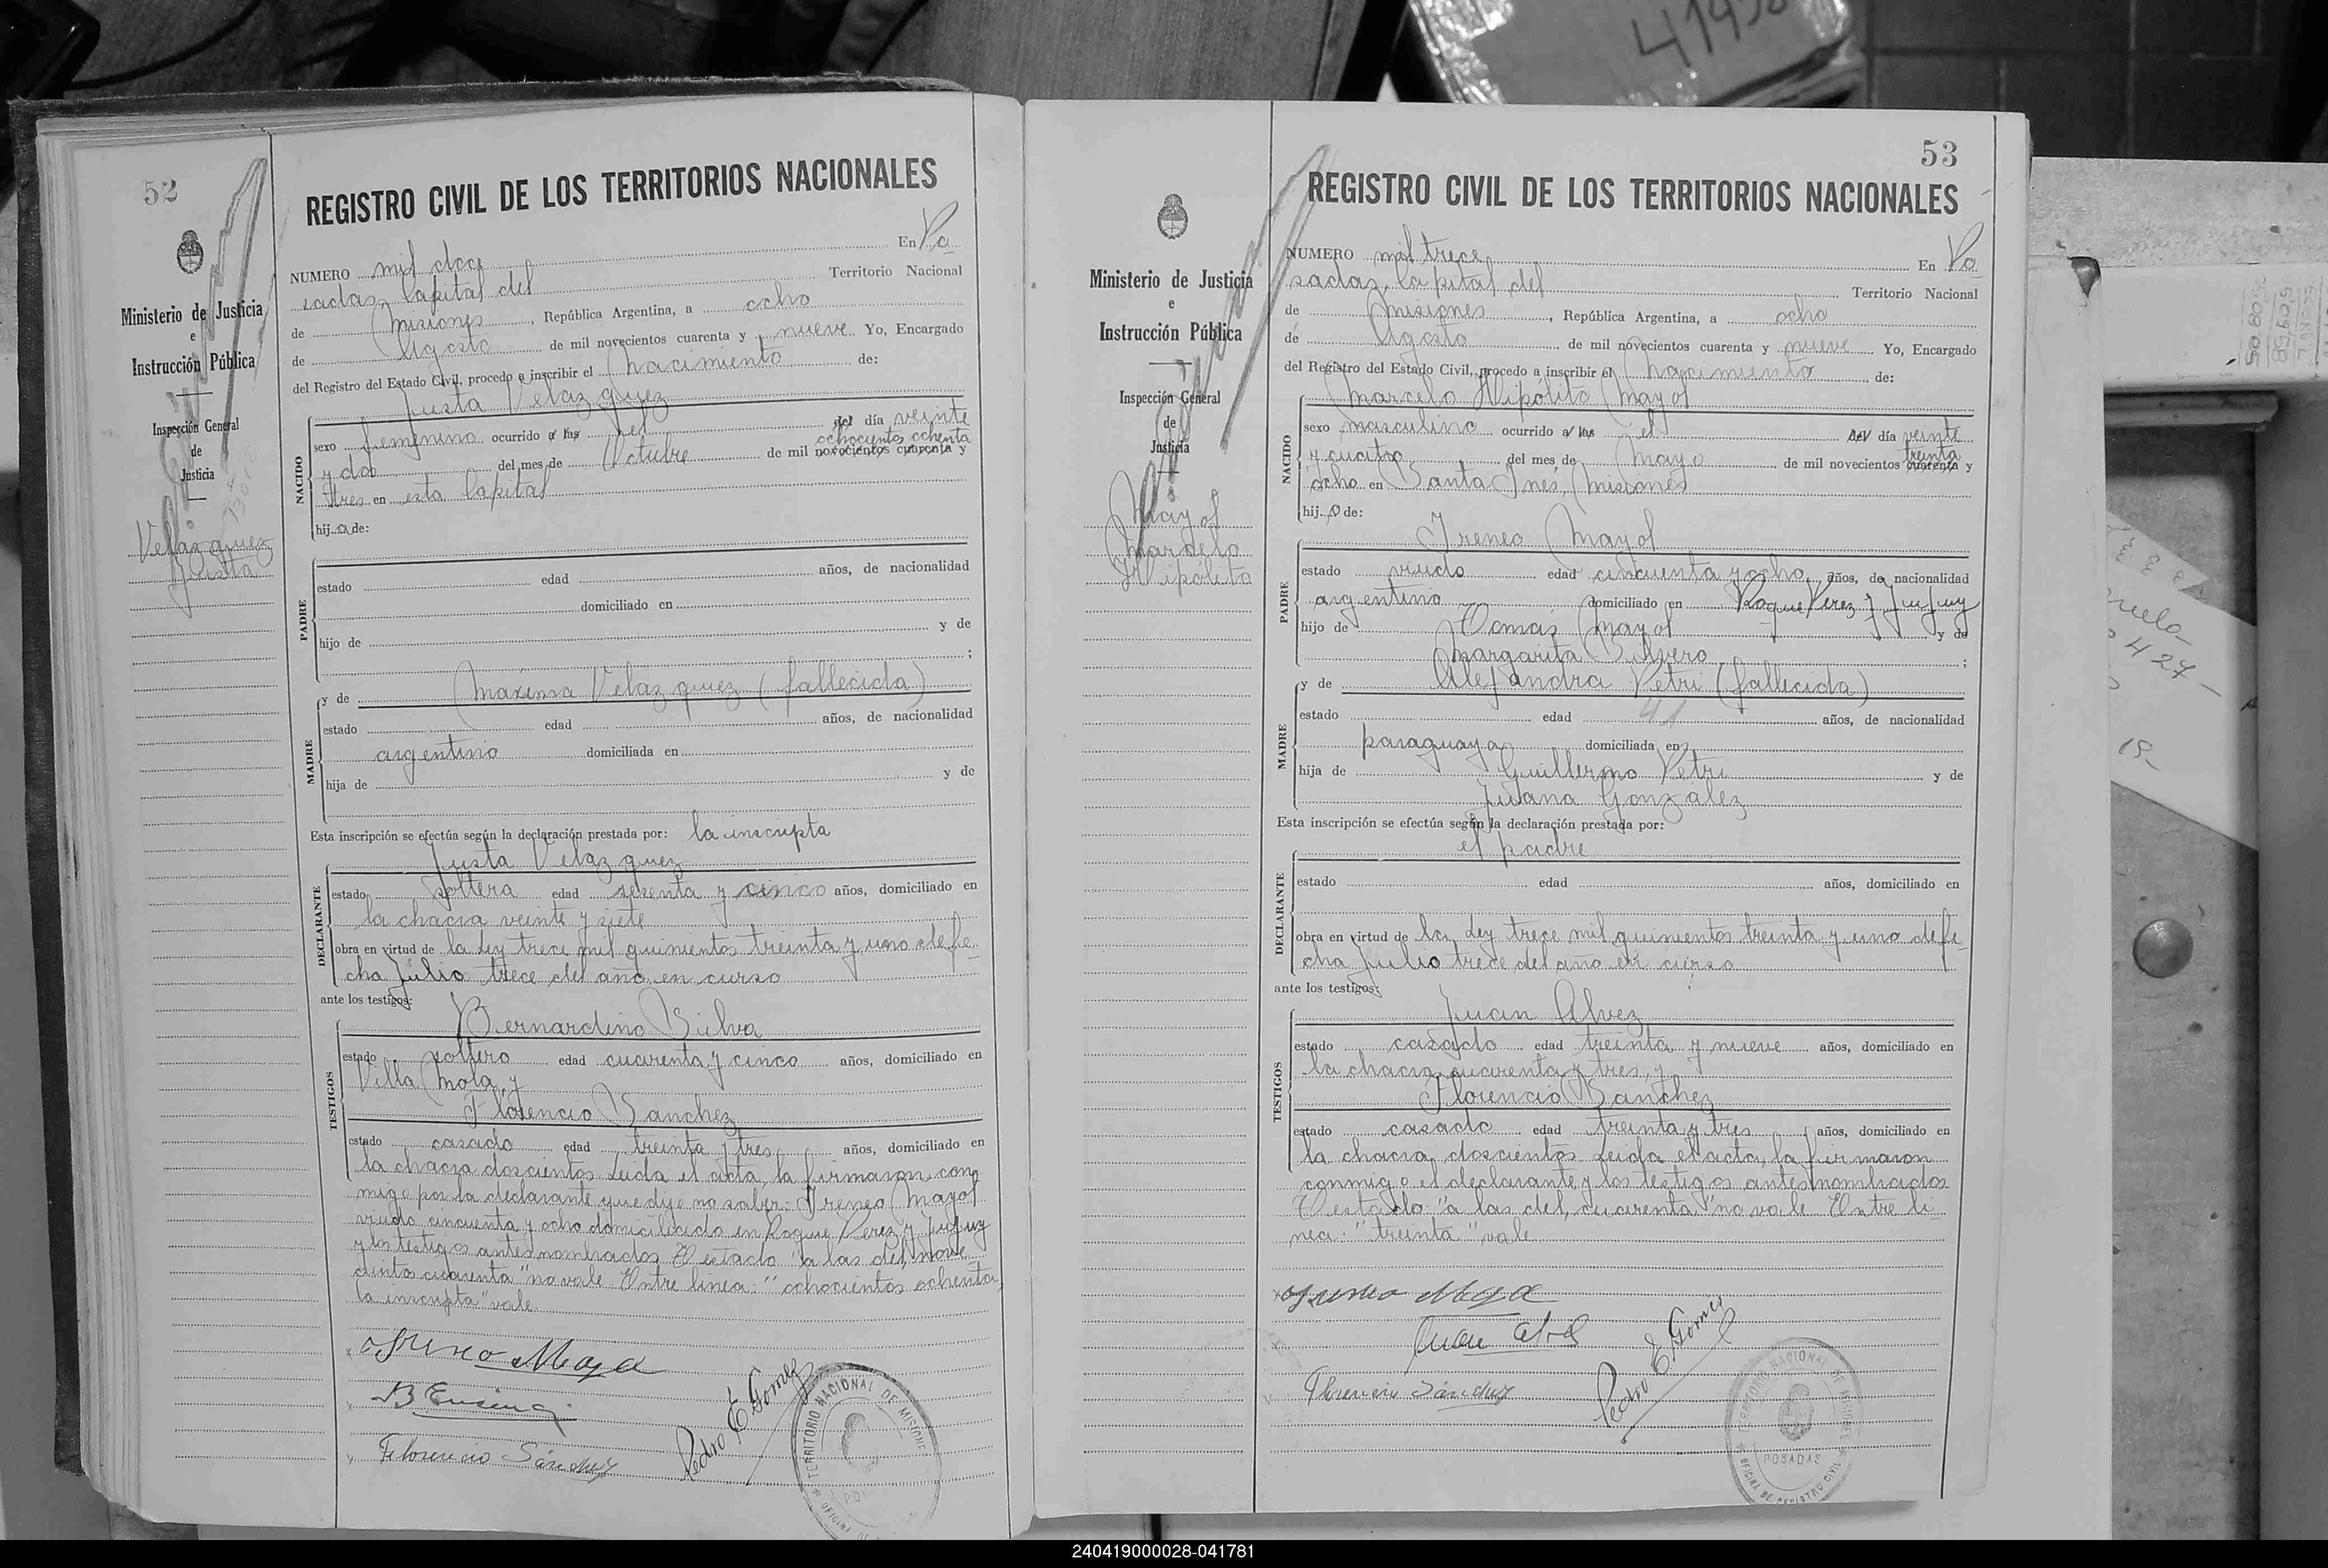 52
Ministerio de Justicia
e
Instrucción Pública
Inspección General
de
Justicia
Velazquez
Justa
REGISTRO CIVIL DE LOS TERRITORIOS NACIONALES
NUMERO mil doce En Po
sadas, Capital del Territorio Nacional
de Misiones, República Argentina, a ocho
de Agosto de mil novecientos cuarenta y nueve Yo, Encargado
del Registro del Estado Civil, procedo a inscribir el nacimiento de:
Justa Velazquez
NACIDO
sexo femenino ocurrido a las el del día veinte
ochocientos ochenta
y dos del mes de Octubre de mil novecientos cuarenta y
tres en esta Capital
hija de:
PADRE
estado edad años, de nacionalidad
domiciliado en
hijo de y de
;
MADRE
y de Maxima Velazquez (fallecida)
estado edad años, de nacionalidad
argentina domiciliada en
hija de y de
Esta inscripción se efectúa según la declaración prestada por: la inscripta
Justa Velazquez
DECLARANTE
estado soltera edad sesenta y cinco años, domiciliado en
la chacra veinte y siete
obra en virtud de la Ley trece mil quinientos treinta y uno de fe-
cha Julio trece del año en curso
ante los testigos:
Bernardino Silva
TESTIGOS
estado soltero edad cuarenta y cinco años, domiciliado en
Villa Mola, y
Florencio Sanchez
estado casado edad treinta y tres años, domiciliado en
la chacra doscientos. Leida el acta, la firmaron con
migo por la declarante que dijo no saber: Ireneo Mayol
viudo cincuenta y ocho domiciliado en Roque Perez y Jujuy
y los testigos antes nombrados. Testado "a las del, nove
cientos cuarenta" no vale. Entre linea: "ochocientos ochenta,
la inscripta" vale.
Florencio Sánchez
Pedro E Gomez
TERRITORIO NACIONAL DE MISIONES
53
Ministerio de Justicia
e
Instrucción Pública
Inspección General
de
Justicia
Mayol
Marcelo
Hipólito
REGISTRO CIVIL DE LOS TERRITORIOS NACIONALES
NUMERO mil trece En Po
sadas, Capital del Territorio Nacional
de Misiones, República Argentina, a ocho
de Agosto de mil novecientos cuarenta y nueve Yo, Encargado
del Registro del Estado Civil, procedo a inscribir el nacimiento de:
Marcelo Hipólito Mayol
NACIDO
sexo masculino ocurrido a las el del día veinte
treinta
y cuatro del mes de Mayo de mil novecientos cuarenta y
ocho en Santa Ines, Misiones
hijo de:
PADRE
Ireneo Mayol
estado viudo edad cincuenta y ocho años, de nacionalidad
argentino domiciliado en Roque Perez y Jujuy
hijo de Tomás Mayol y de
Margarita Silvero;
MADRE
y de Alejandra Petri (fallecida)
estado edad 41 años, de nacionalidad
paraguaya domiciliada en
hija de Guillermo Petri y de
Juana Gonzalez
Esta inscripción se efectúa según la declaración prestada por:
el padre
DECLARANTE
estado edad años, domiciliado en
obra en virtud de la Ley trece mil quinientos treinta y uno de fe-
cha Julio trece del año en curso
ante los testigos:
Juan Alvez
TESTIGOS
estado casado edad treinta y nueve años, domiciliado en
la chacra cuarenta y tres, y
Florencio Sanchez
estado casado edad treinta y tres años, domiciliado en
la chacra doscientos. Leida el acta, la firmaron
conmigo el declarante y los testigos antes nombrados
Testado: "a las del, cuarenta" no vale. Entre li-
nea: "treinta" vale
Florencio Sánchez
Pedro E Gomez
TERRITORIO NACIONAL DE MISIONES
POSADAS
OFICINA DE REGISTRO CIVIL
240419000028-041781